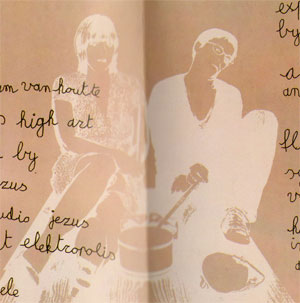 um van houtte
s high art
by
zus
udio jezus
t elektropolis
ele
exp
by
a
an
fl
se
v
h
i